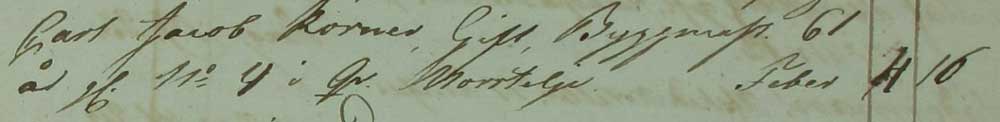 Carl Jacob Körner, Gift, Byggmäst. 61
år gl. No 4 i Qv. Norrtelje. Feber 4 16